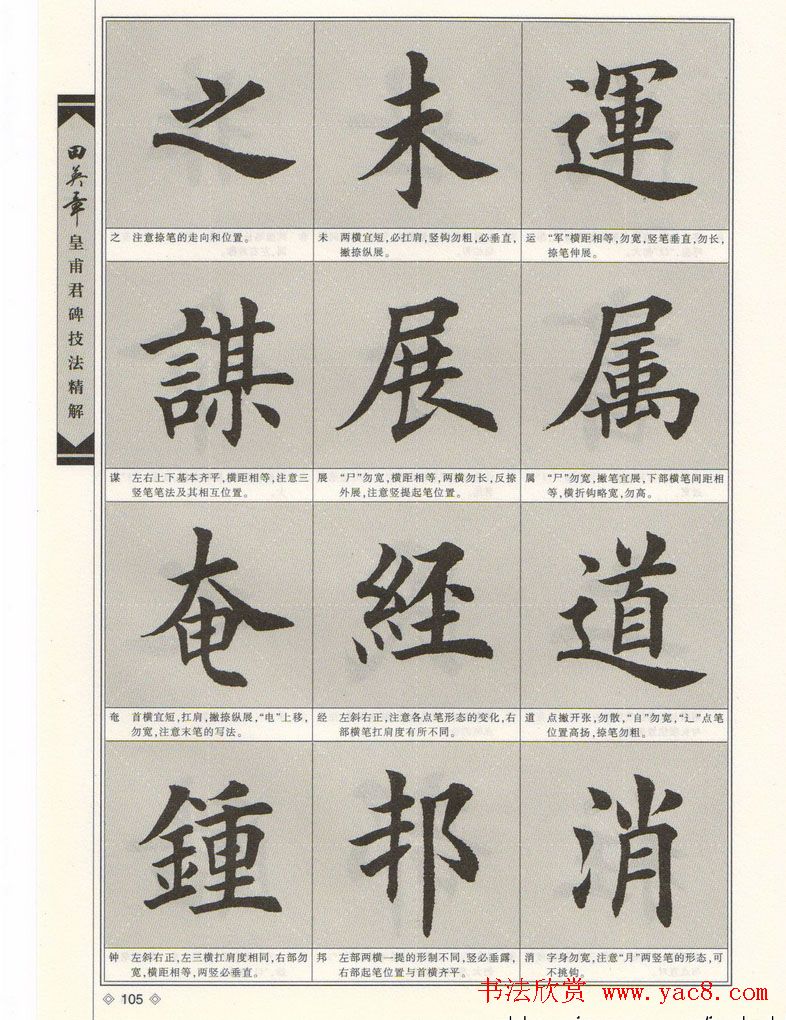 之
未
運
之 注意捺笔的走向和位置。
未 两横宜短,必扛肩,竖钩勿粗,必垂直,
撇捺纵展。
运 “军”横距相等,勿宽,竖笔垂直,勿长,
捺笔伸展。
謀
展
属
谋 左右上下基本齐平,横距相等,注意三
竖笔笔法及其相互位置。
展 “尸”勿宽,横距相等,两横勿长,反捺
外展,注意竖提起笔位置。
属 “尸”勿宽,撇笔宜展,下部横笔间距相
等,横折钩略宽,勿高。
奄
經
道
奄 首横宜短,扛肩,撇捺纵展,“电”上移,
勿宽,注意末笔的写法。
经 左斜右正,注意各点笔形态的变化,右
部横笔扛肩度有所不同。
道 点撇开张,勿散,“自”勿宽,“辶”点笔
位置高扬,捺笔勿粗。
鍾
邦
消
钟 左斜右正,左三横扛肩度相同,右部勿
宽,横距相等,两竖必垂直。
邦 左部两横一提的形制不同,竖必垂露,
右部起笔位置与首横齐平。
消 字身勿宽,注意“月”两竖笔的形态,可
不挑钩。
田英章
皇甫君碑技法精解
105
书法欣赏 www.yac8.com